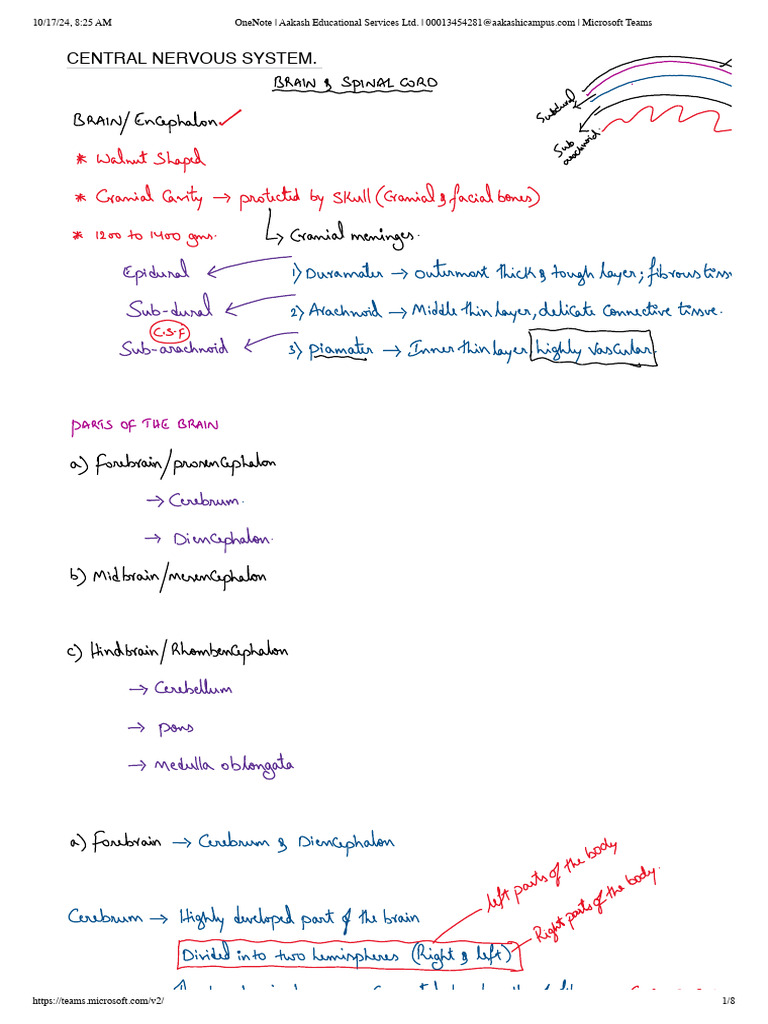 10/17/24, 8:25 AM OneNote | Aakash Educational Services Ltd. | 00013454281@aakashicampus.com | Microsoft Teams
CENTRAL NERVOUS SYSTEM.
BRAIN & SPINAL CORD
Subdural
Sub arachnoid.
BRAIN/Encephalon ✓
* Walnut Shaped
* Cranial Cavity → protected by Skull (Cranial & facial bones)
* 1200 to 1400 gms. ↳ Cranial meninges.
Epidural ← 1) Duramater → outermost thick & tough layer; fibrous tiss
Sub-dural ← 2) Arachnoid → Middle thin layer, delicate connective tissue.
C.S.F
Sub-arachnoid ← 3) Piamater → Inner thin layer highly vascular.
PARTS OF THE BRAIN
a) Forebrain/prosencephalon
→ Cerebrum.
→ Diencephalon.
b) Midbrain/mesencephalon
c) Hindbrain/Rhombencephalon
→ Cerebellum
→ pons
→ Medulla oblongata
a) Forebrain → Cerebrum & Diencephalon
left parts of the body
Right parts of the body.
Cerebrum → Highly developed part of the brain
Divided into two hemispheres (Right & left)
https://teams.microsoft.com/v2/ 1/8